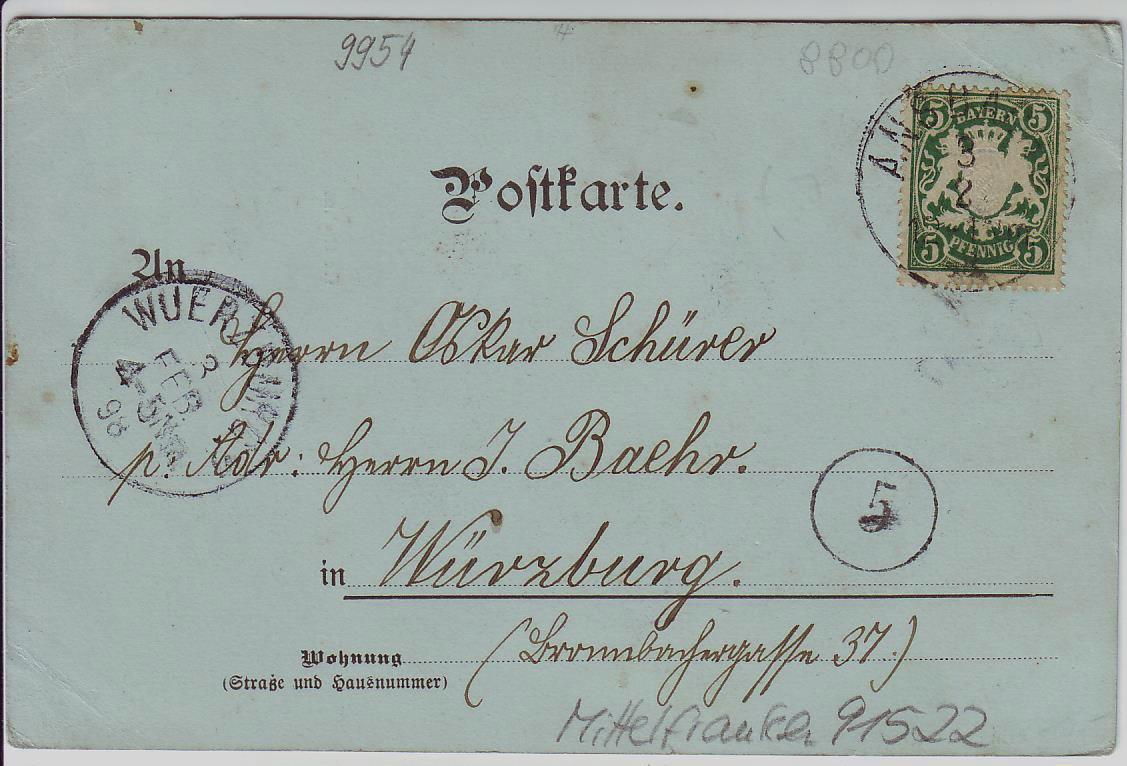 9954
8800
5 BAYERN 5
5 PFENNIG 5
3
2
Postkarte.
An
WUERZBURG
3
FEB.
4-5NM
98
Herrn Oskar Schürer
p. Adr: Herrn J. Baehr.
5
in Würzburg.
Wohnung (Brombachergasse 37.)
(Straße und Hausnummer)
Mittelfranken 91522